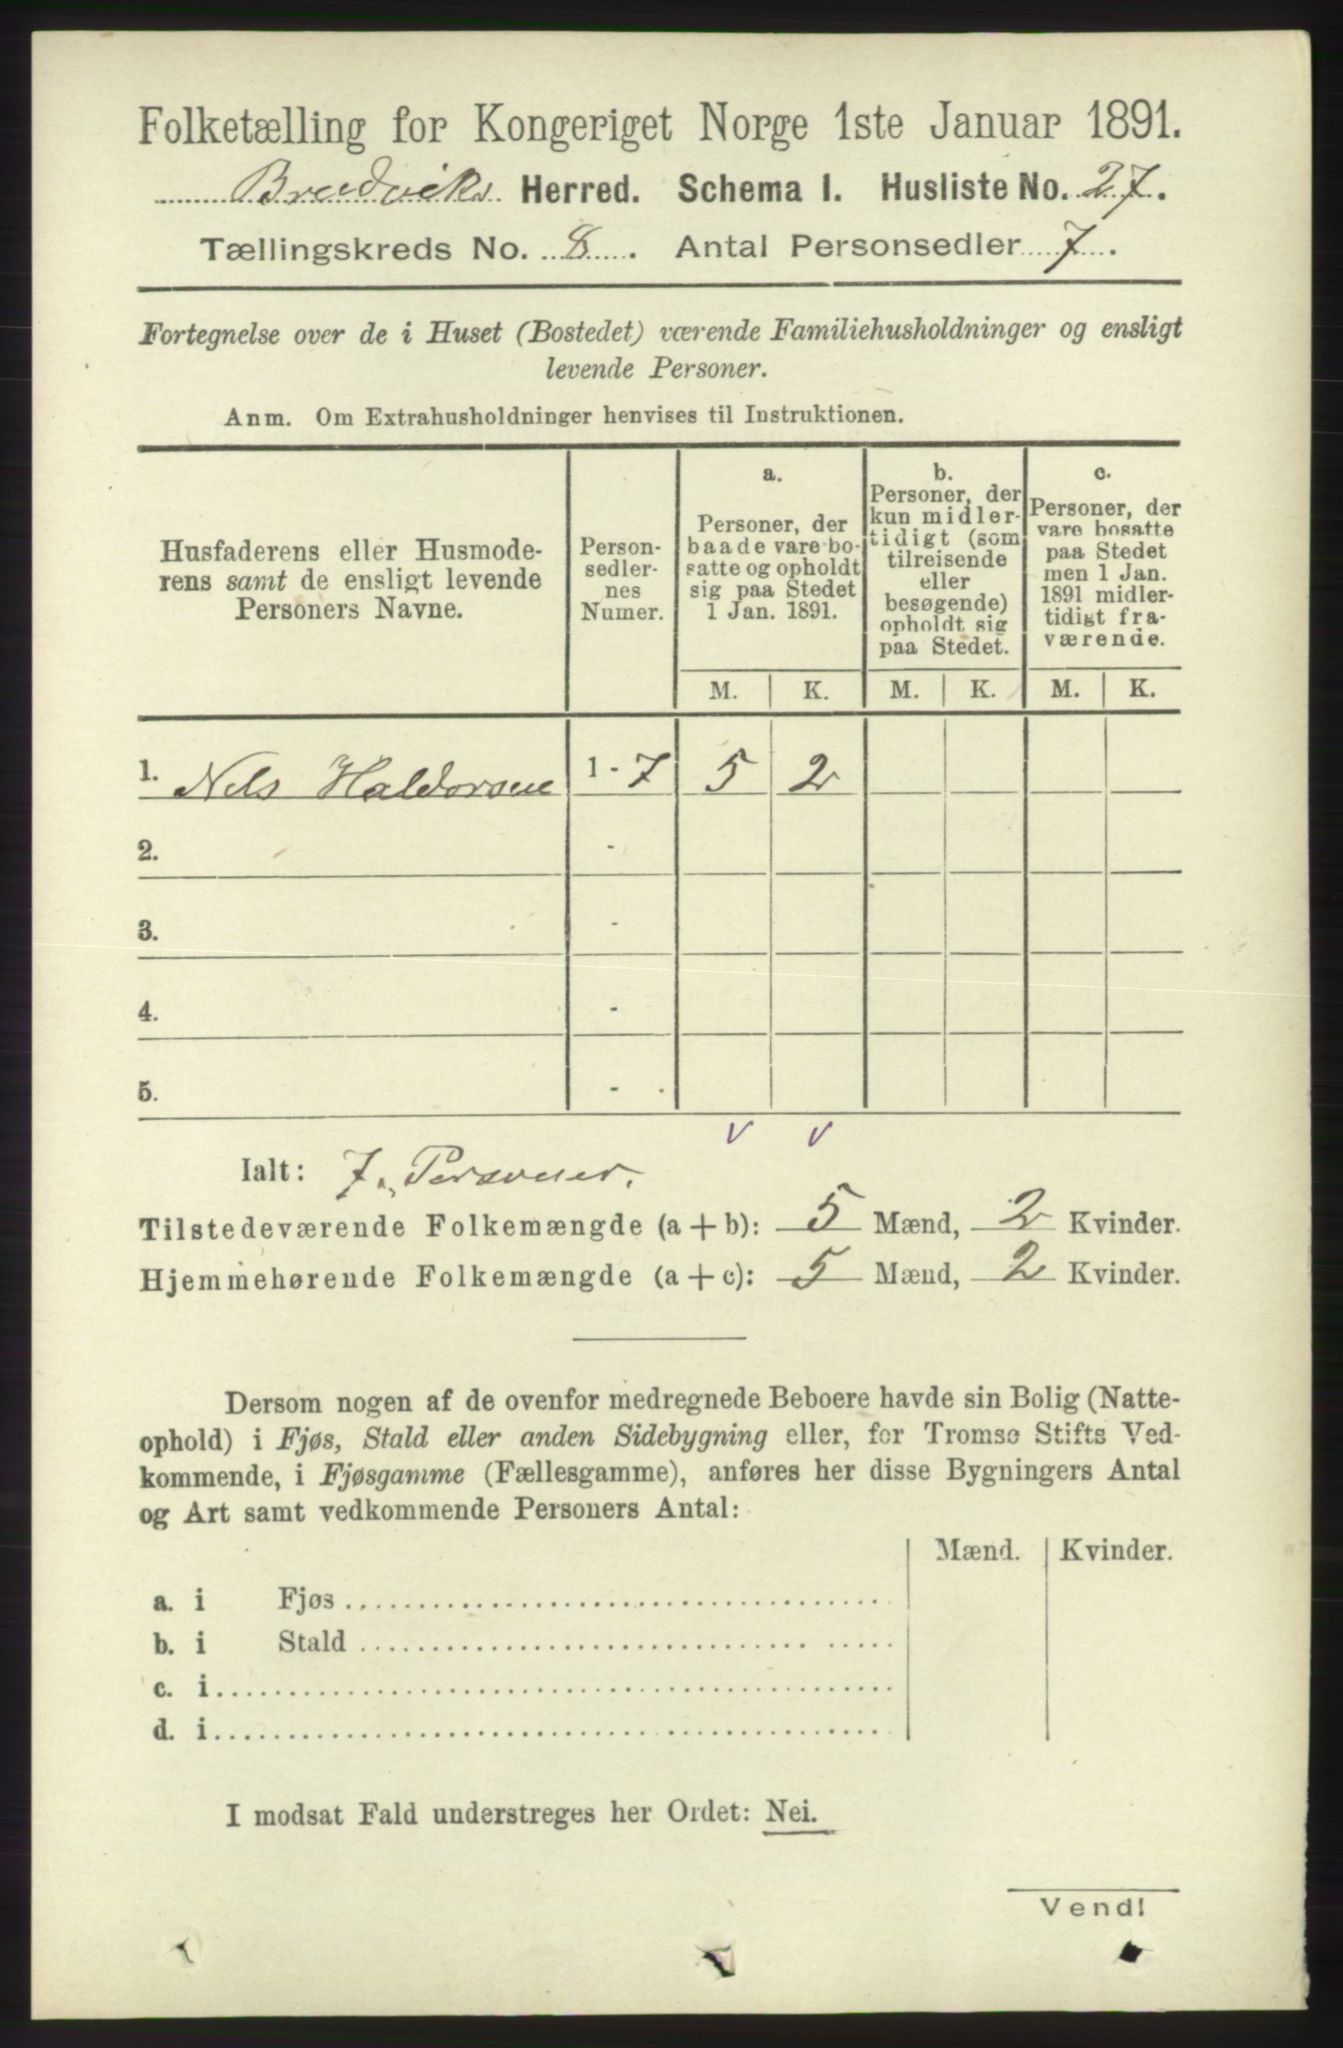 Folketælling for Kongeriget Norge 1ste Januar 1891.
Bruviks Herred. Schema I. Husliste No. 27.
Tællingskreds No. 8. Antal Personsedler 7.
Fortegnelse over de i Huset (Bostedet) værende Familiehusholdninger og ensligt
levende Personer.
Anm. Om Extrahusholdninger henvises til Instruktionen.
Husfaderens eller Husmode-
rens samt de ensligt levende
Personers Navne.
Person-
sedler-
nes
Numer.
a.
Personer, der
baade vare bo-
satte og opholdt
sig paa Stedet
1 Jan. 1891.
b.
Personer, der
kun midler-
tidigt (som
tilreisende
eller
besøgende)
opholdt sig
paa Stedet.
c.
Personer, der
vare bosatte
paa Stedet
men 1 Jan.
1891 midler-
tidigt fra-
værende.
M. K. M. K. M. K.
1. Nels Haldorsen 1 - 7 5 2
2. -
3. -
4. -
5. -
v v
Ialt: 7 Personer.
Tilstedeværende Folkemængde (a + b): 5 Mænd, 2 Kvinder.
Hjemmehørende Folkemængde (a + c): 5 Mænd, 2 Kvinder.
Dersom nogen af de ovenfor medregnede Beboere havde sin Bolig (Natte-
ophold) i Fjøs, Stald eller anden Sidebygning eller, for Tromsø Stifts Ved-
kommende, i Fjøsgamme (Fællesgamme), anføres her disse Bygningers Antal
og Art samt vedkommende Personers Antal:
Mænd. Kvinder.
a. i Fjøs
b. i Stald
c. i
d. i
I modsat Fald understreges her Ordet: Nei.
Vend!